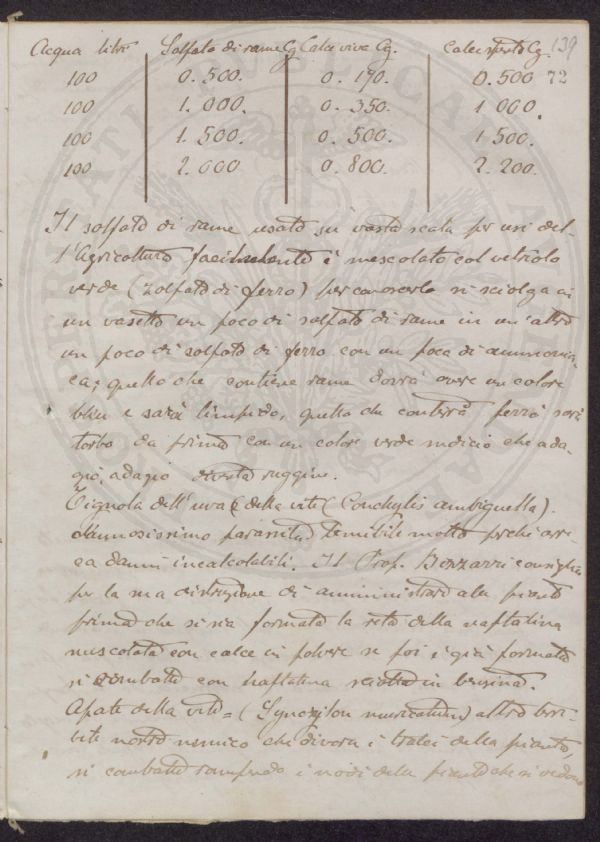 139
Acqua litri Solfato di rame Cg Calce viva Cg. Calce spenta Cg.
100 0.500. 0.170. 0.500 72
100 1.000. 0.350. 1 000.
100 1.500. 0.500. 1 500.
100 2.000 0.800. 2.200.
Il solfato di rame usato su vasta scala per usi del-
l'Agricoltura facilmente è mescolato col vetriolo
verde (Zolfato di ferro) per conoscerlo si sciolga in
un vasetto un poco di solfato di rame in un altro
un poco di solfato di ferro con un poco di ammonia-
ca; quello che contiene rame dovrà avere un colore
bleu e sarà limpido, quello che conterrà ferro sarà
torbo da prima con un colore verde sudicio che ada-
gio, adagio diventa ruggine.
Tignola dell'uva e della vite (Conchylis ambiguella).
dannosissimo parassita temibile molto perchè arre-
ca danni incalcolabili. Il Prof. consiglia
per la sua distruzione di amministrare alle piante
prima che si sia formata la seta della naftalina
mescolata con calce in polvere se poi è già formata
si combatte con naftalina sciolta in benzina.
Apate della vite = (Synoxylon muricatum) altro terri-
bile nostro nemico che divora i tralci della pianta,
si combatte rompendo i nodi della pianta che si vedono